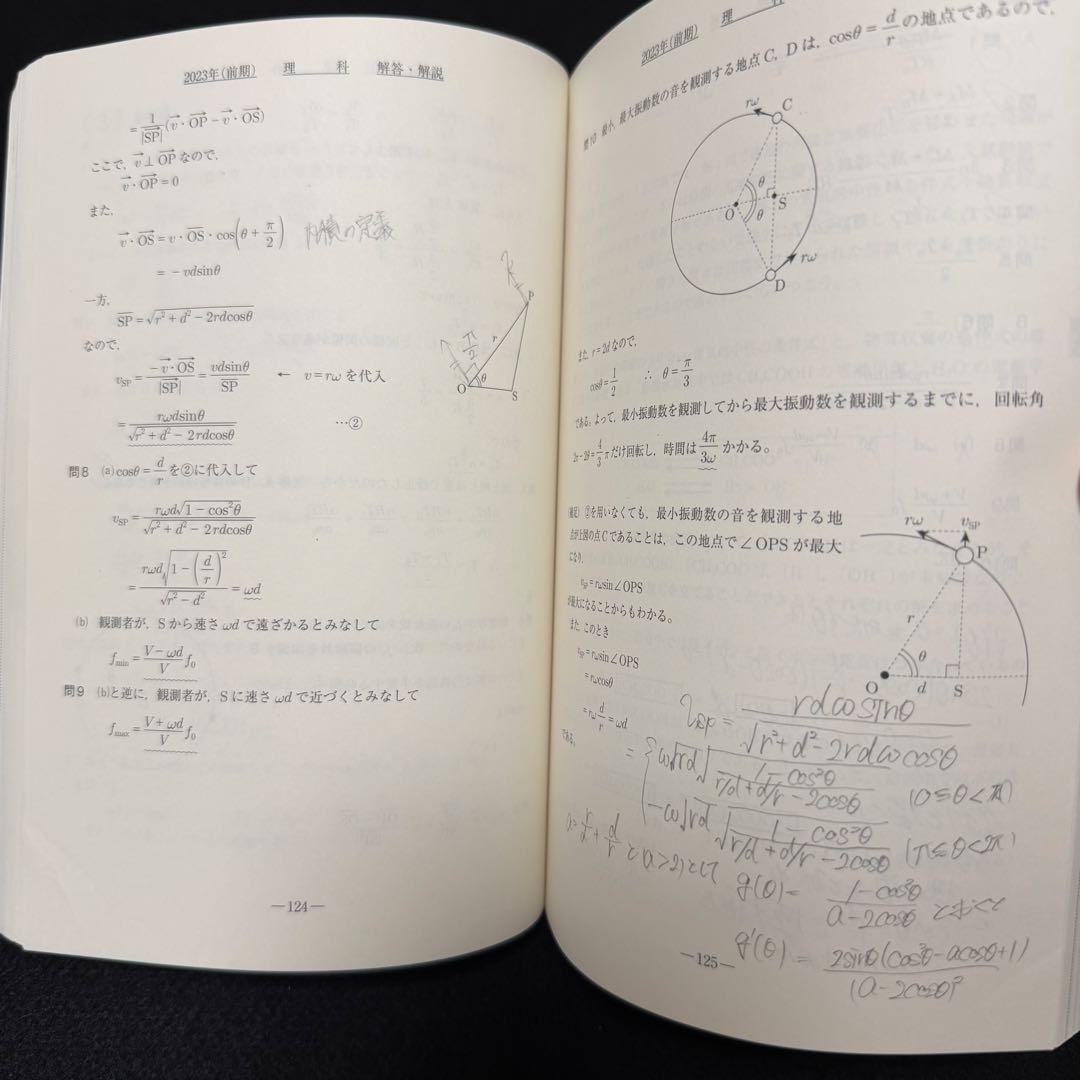 2023年(前期) 理 科 解答・解説
=1/|SP→|(v→・OP→−v→・OS→)
ここで，v→⊥OP→なので，
v→・OP→=0
また，
v→・OS→=v・OS・cos(θ+π/2) 内積の定義
=−vdsinθ
一方，
SP=√(r²+d²−2rdcosθ)
なので，
vSP=−v→・OS→/|SP→|=vdsinθ/SP ← v=rωを代入
=rωdsinθ/√(r²+d²−2rdcosθ) …②
P
r
π/2
O
θ
S
問8 (a) cosθ=d/rを②に代入して
vSP=rωd√(1−cos²θ)/√(r²+d²−2rdcosθ)
=rωd√(1−(d/r)²)/√(r²−d²)=ωd
(b) 観測者が，Sから速さωdで遠ざかるとみなして
fmin=(V−ωd)/V f0
問9 (b)と逆に，観測者が，Sに速さωdで近づくとみなして
fmax=(V+ωd)/V f0
—124—
2023年(前期) 理 科
問10 最小，最大振動数の音を観測する地点C，Dは，cosθ=d/rの地点であるので，
rω
C
θ
O
S
θ
D
rω
また，r=2dなので，
cosθ=1/2 ∴ θ=π/3
である。よって，最小振動数を観測してから最大振動数を観測するまでに，回転角
2π−2θ=4/3πだけ回転し，時間は4π/3ωかかる。
(補足) ②を用いなくても，最小振動数の音を観測する地
点が上図の点Cであることは，この地点で∠OPSが最大
になり，
vSP=rωsin∠OPS
が最大になることからもわかる。
また，このとき
vSP=rωsin∠OPS
=rωcosθ
=rω d/r=ωd
である。
rω
vSP
P
r
θ
O
d
S
vSP=rdωsinθ/√(r²+d²−2rdωcosθ)
={ω√rd√((1−cos²θ)/(r/d+d/r−2cosθ)) (0≦θ<π)
−ω√rd√((1−cos²θ)/(r/d+d/r−2cosθ)) (π≦θ<2π)
a=r/d+d/rと(a>2)として
g(θ)=(1−cos²θ)/(a−2cosθ)とおくと
g'(θ)=2sinθ(cos²θ−acosθ+1)/(a−2cosθ)²
—125—